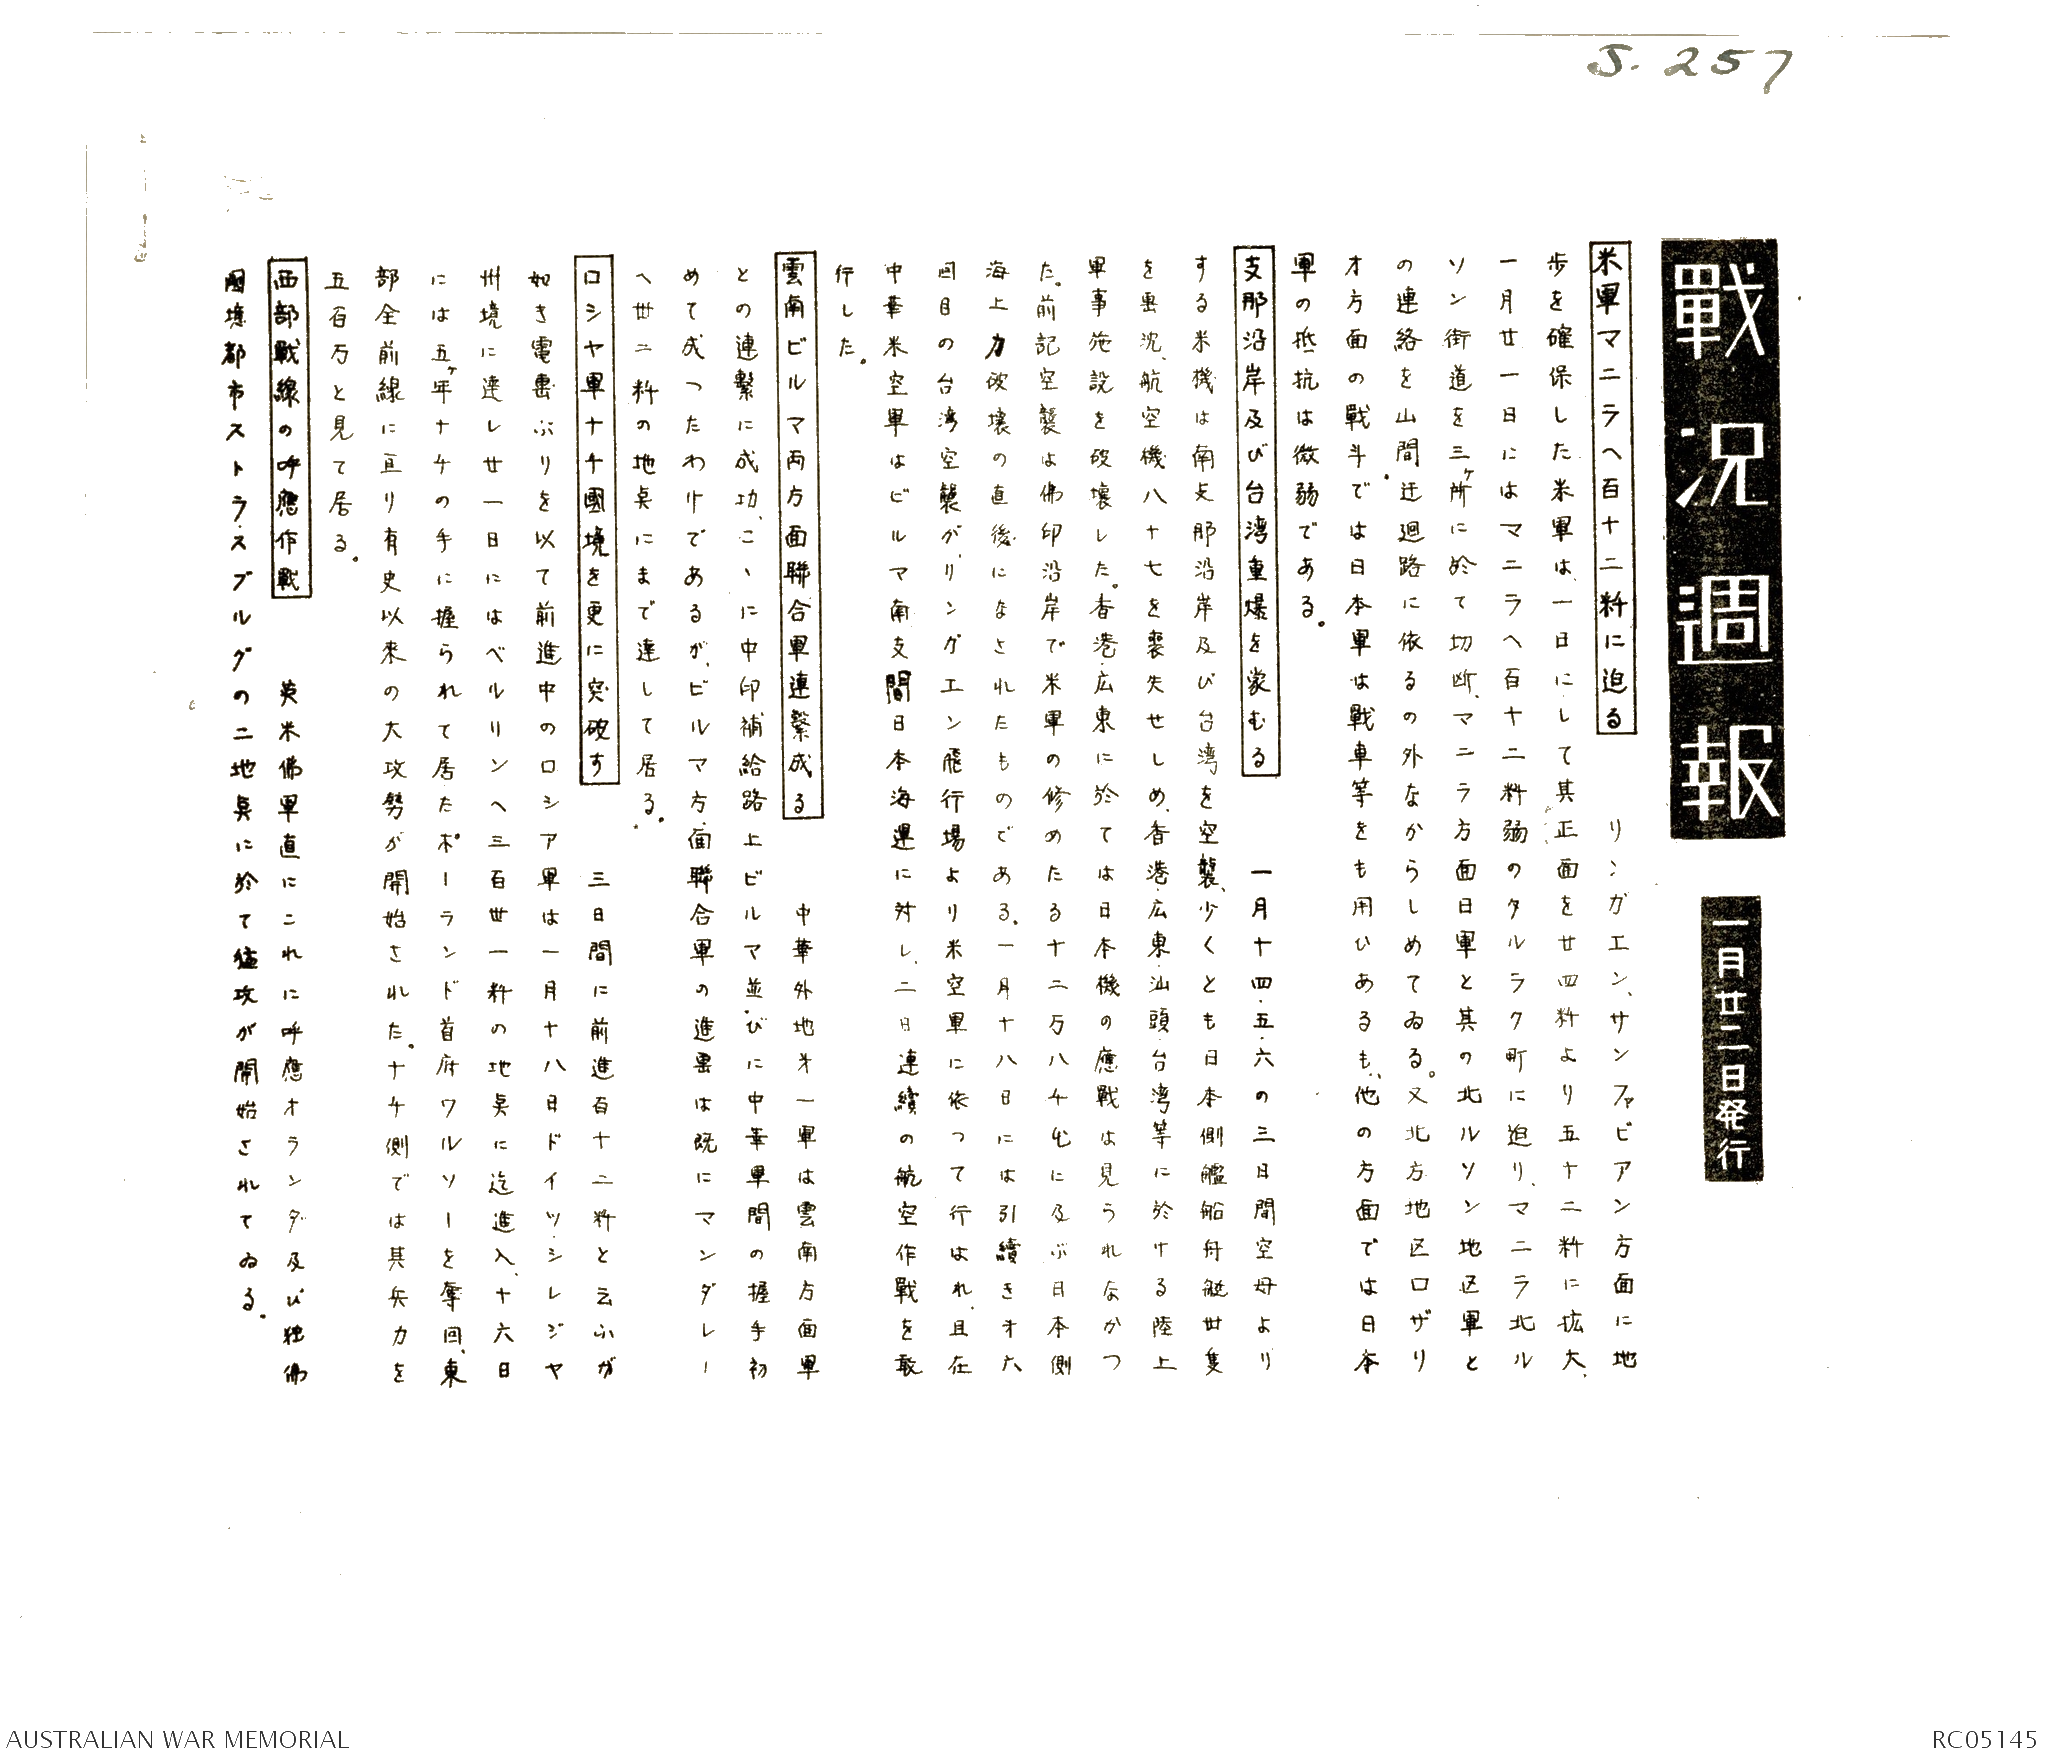 J. 257
戰況週報
一月廿二日発行
米軍マニラへ百十二粁に迫る リンガエン、サンファビアン方面に地
歩を確保した米軍は、一日にして其正面を廿四粁より五十二粁に拡大、
一月廿一日にはマニラへ百十二粁弱のタルラク町に迫り、マニラ北ル
ソン街道を三ヶ所に於て切断、マニラ方面日軍と其の北ルソン地区軍と
の連絡を山間迂廻路に依るの外なからしめてゐる。又北方地区ロザリ
オ方面の戰斗では日本軍は戰車等をも用ひあるも、他の方面では日本
軍の抵抗は微弱である。
支那沿岸及び台湾重爆を蒙むる 一月十四・五・六の三日間空母より
する米機は南支那沿岸及び台湾を空襲、少くとも日本側艦船舟艇廿隻
を轟沈、航空機八十七を喪失せしめ、香港・広東・汕頭・台湾等に於ける陸上
軍事施設を破壊した。香港・広東に於ては日本機の應戰は見られなかつ
た。前記空襲は佛印沿岸で米軍の修めたる十二万八千屯に及ぶ日本側
海上力破壊の直後になされたものである。一月十八日には引續きオ六
回目の台湾空襲が、リンガエン飛行場より米空軍に依つて行はれ、且在
中華米空軍はビルマ南支間日本海運に対し、二日連續の航空作戰を敢
行した。
雲南ビルマ両方面聯合軍連繫成る 中華外地オ一軍は雲南方面軍
との連繫に成功、こゝに中印補給路上ビルマ並びに中華軍間の握手初
めて成つたわけであるが、ビルマ方面聯合軍の進轟は既にマンダレー
へ廿二粁の地点にまで達して居る。
ロシヤ軍ナチ國境を更に突破す 三日間に前進百十二粁と云ふが
如き電轟ぶりを以て前進中のロシア軍は一月十八日ドイツ・シレジヤ
州境に達し廿一日にはベルリンへ三百廿一粁の地点に迄進入、十六日
には五ヶ年ナチの手に握られて居たポーランド首府ワルソーを奪回、東
部全前線に亘り有史以来の大攻勢が開始された。ナチ側では其兵力を
五百万と見て居る。
西部戰線の呼應作戰 英米佛軍直にこれに呼應オランダ及び独佛
國境都市ストラスブルグの二地点に於て猛攻が開始されてゐる。
AUSTRALIAN WAR MEMORIAL
RC05145